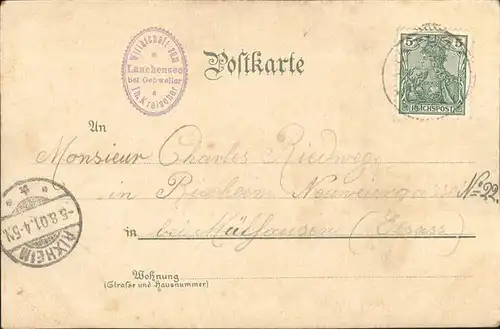 Wirtschaft zum
Lauchensee
bei Gebweiler
Postkarte
5 5
REICHSPOST
An
Monsieur Charles Riedweg
in Rixheim
No 22
in bei Mülhausen (Elsass)
-5.8.01. 4-5N.
RIXHEIM
Wohnung
(Straße und Hausnummer)